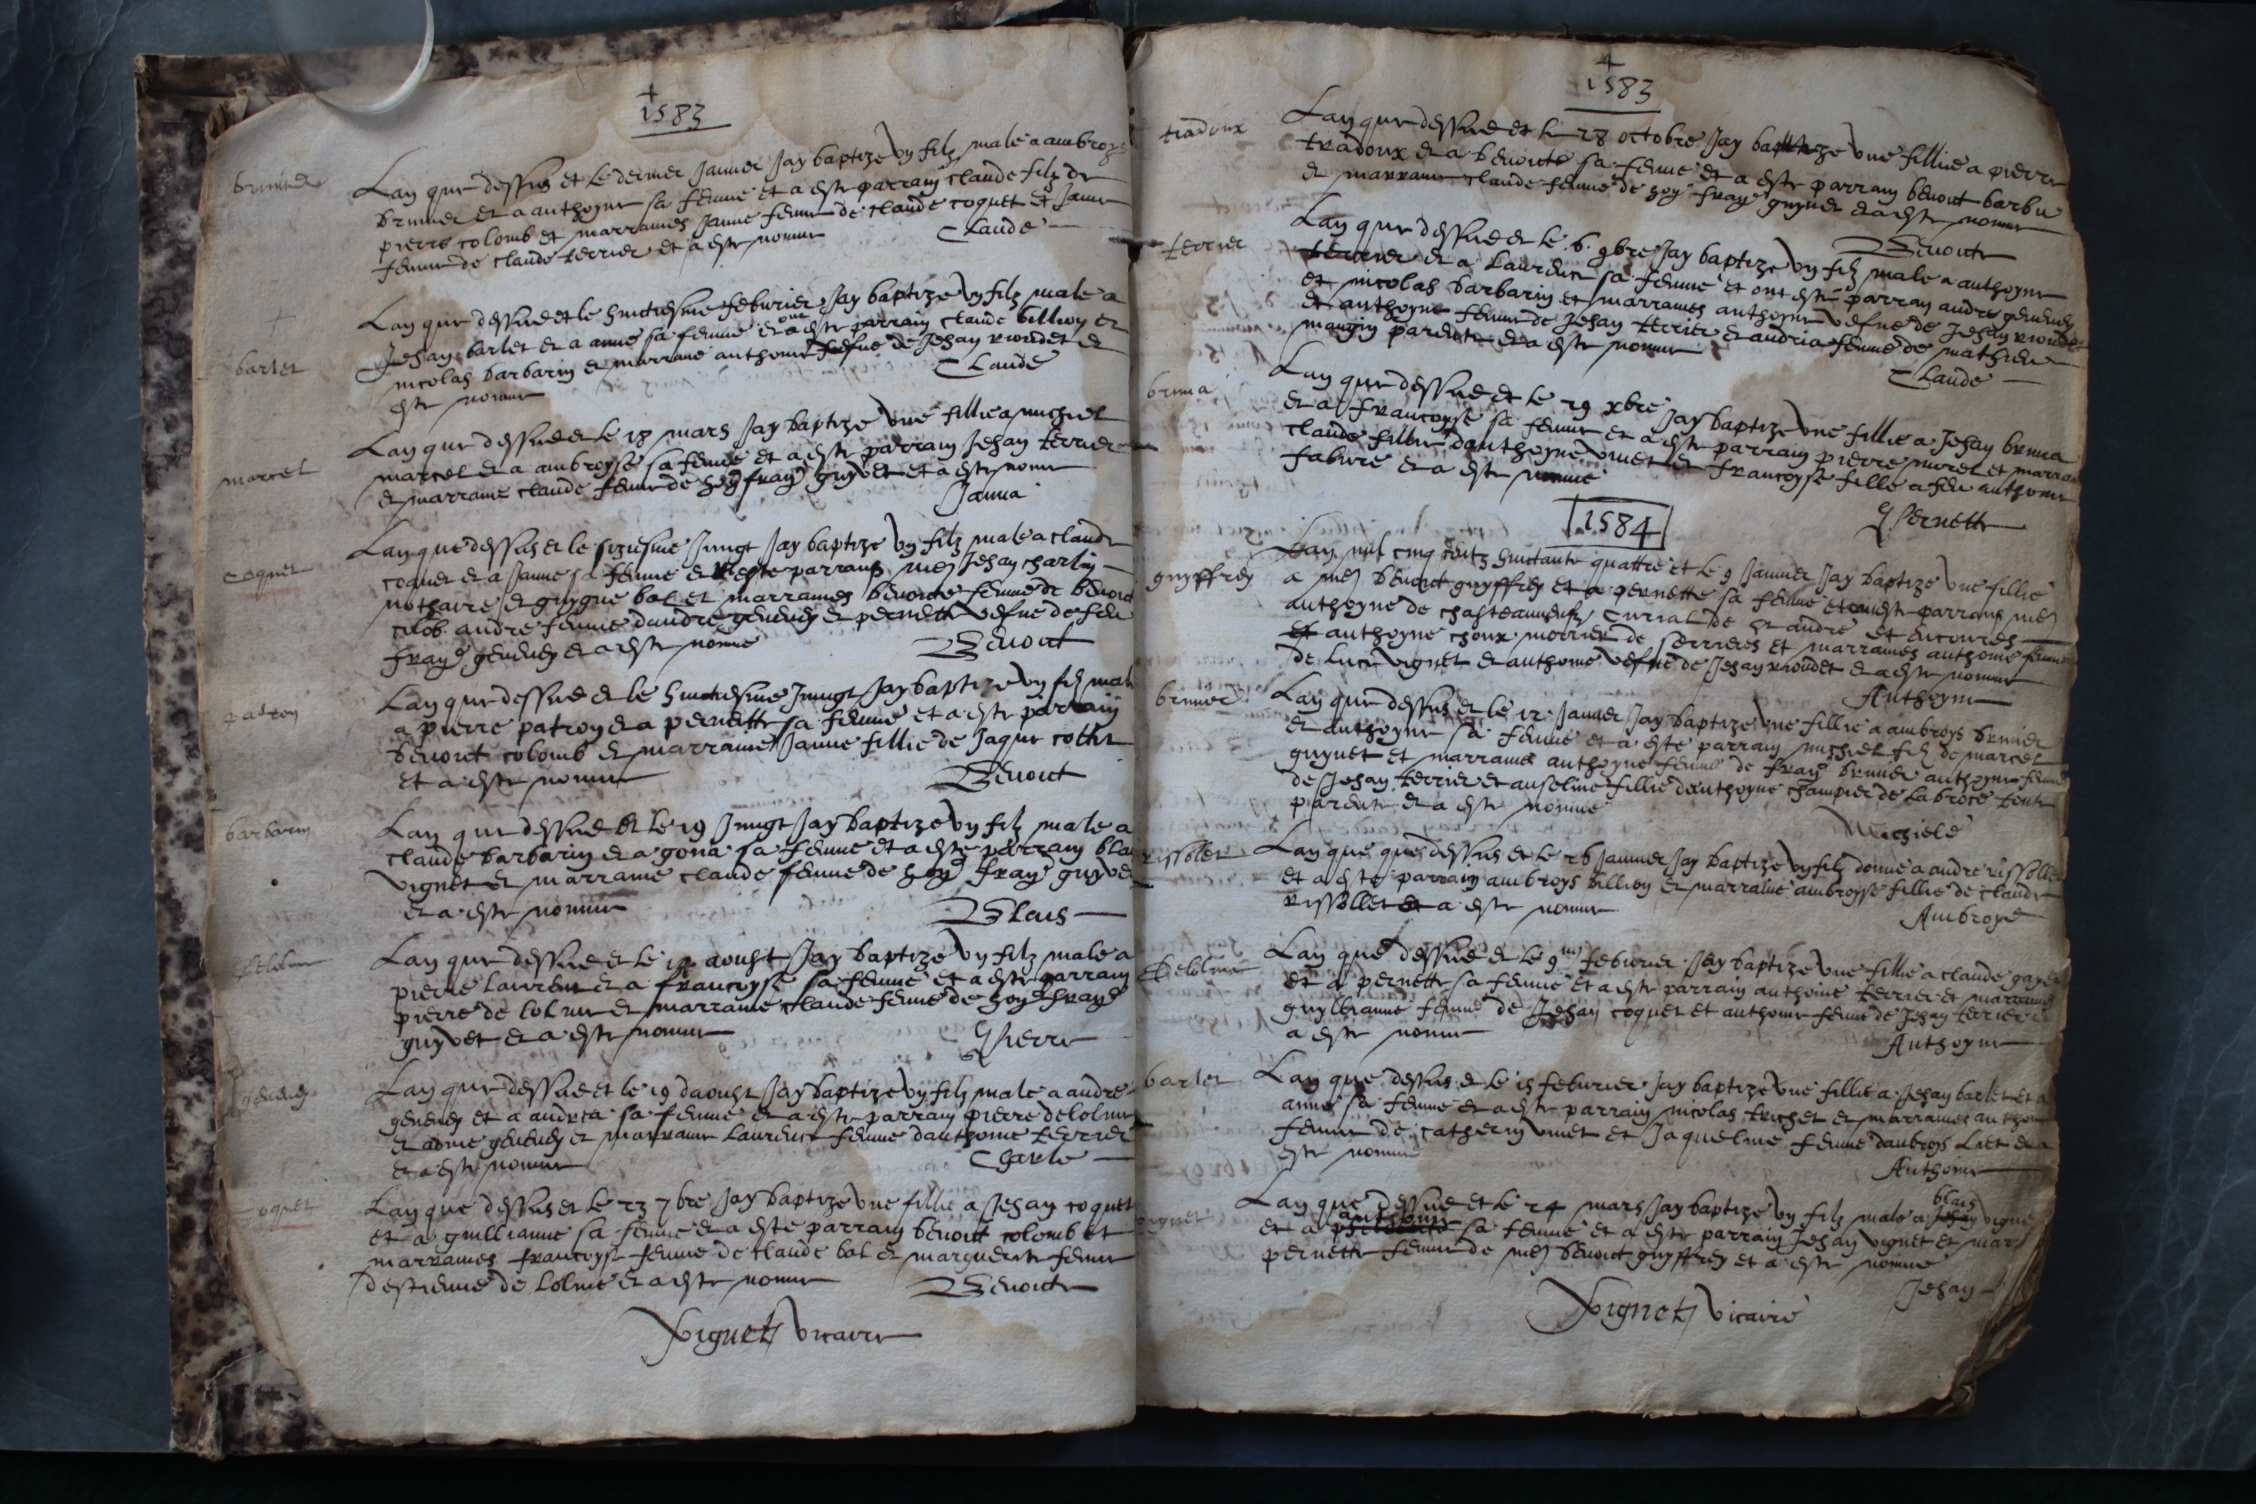 1583
brunier
Lan que dessus et le dernier Janvier Jay baptize ung filz male a ambroys
brunier et a anthoyne sa femme et a este parrain claude filz de
pierre colomb et marraines Janne femme de claude coquet et Janne
femme de claude terrier et a este nomme Claude
barlet
Lan que dessus et le huictiesme febvrier Jay baptize ung filz male a
Jehan barlet et a anne sa femme et ont este parrain claude billion et
nicolas barbarin et marraine anthoine vefve de Jehan riondet et
este nomme Claude
marcel
Lan que dessus et le 18 mars Jay baptize une fillie a michiel
marcel et a ambroyse sa femme et a este parrain Jehan terrier
et marraine claude femme de hoy fray guyvet et a este nomme
Janna
coquet
Lan que dessus et le siziesme Jungt Jay baptize ung filz male a claude
coquet et a Janne sa femme et este parrains Jehan charlin
nothaire et guygue bal et marraines benoite femme de benoit
colob andre femme dandre genevey et pernette vefve de feu
fray genevey et a este nomme Benoit
patron
Lan que dessus et le huictiesme Jungt Jay baptize ung filz male
a pierre patron et a pernette sa femme et a este parrain
benoit colomb et marraine Janne fillie de Jaque
et a este nomme Benoit
barbarin
Lan que dessus et le 19 Jungt Jay baptize ung filz male a
claude barbarin et a gona sa femme et a este parrain
vignet et marraine claude femme de hoy fray guyvet
et a este nomme Blais
delolme
Lan que dessus et le aoust Jay baptize ung filz male a
pierre laurent et a francoyse sa femme et a este parrain
pierre de lolme et marraine claude femme de hoy fray
guyvet et a este nomme Pierre
genevey
Lan que dessus et le 19 daoust Jay baptize ung filz male a andre
genevey et a andrea sa femme et a este parrain pierre delolme
et genevey et marraine laurence femme danthoine terrier
et a este nomme Charle
coquet
Lan que dessus et le 23 7bre Jay baptize une fillie a Jehan coquet
et a guillianne sa femme et a este parrain benoict colomb et
marraines francoyse femme de claude bal et marguerite femme
destienne de lolme et a este nomme Benoite
Vignet vicaire
1583
tradoux
Lan que dessus et le 28 octobre Jay baptize une fillie a pierre
tradoux et a benoite sa femme et a este parrain benoict
et marraine claude femme de hoy fray guyvet et a este nomme
Benoite
terrier
Lan que dessus et le 6 9bre Jay baptize ung filz male a anthoyne
terrier et a laurence sa femme et ont este parrain andre genevey
et nicolas barbarin et marraines anthoyne vefve de Jehan riondet
et anthoyne femme de Jehan terrier et andria femme de mathieu
maugin parente et a este nomme Claude
bruna
Lan que dessus et le 29 xbre Jay baptize une fillie a Jehan bruna
et a francoyse sa femme et a este parrain pierre morel et marraine
claude fillie danthoyne vinet et francoyse fille a feu anthoine
fabvre et a este nomme
Pernette
1584
guyffrey
Lan mil cinq centz huictante quattre et le 9 Janvier Jay baptize une fillie
a benoict guyffrey et a pernette sa femme et ont este parrains
anthoyne de chasteauneufz de st andre et
et anthoyne choux de serrieres et marraines anthoine femme
de luc vignet et anthoine vefve de Jehan riondet et a este nomme
Anthoyne
brunier
Lan que dessus et le 12 Janvier Jay baptize une fillie a ambroys brunier
et anthoyne sa femme et a este parrain michiel filz de marcel
guyvet et marraines anthoyne femme de fray brunier anthoyne femme
de Jehan terrier et anseline fillie danthoyne champier de la broce
parente et a este nomme Michiele
rissollet
Lan que que dessus et le 26 Janvier Jay baptize ung filz donne a andre rissollet
et a este parrain ambroys billion et marraine ambroyse fillie de claude
rissollet et a este nomme Ambroyse
delolme
Lan que dessus et le 9me febvrier Jay baptize une fillie a claude
et a pernette sa femme et a este parrain anthoine terrier et marraine
guyllianne femme de Jehan coquet et anthoine femme de Jehan terrier et
a este nomme Anthoyne
barlet
Lan que dessus et le 15 febvrier Jay baptize une fillie a Jehan barlet et a
anne sa femme et a este parrain nicolas trichet et marraines anthoine
femme de catherin vinet et Jaqueline femme danbroys liet et a
este nomme Anthoine
vignet
Lan que dessus et le 24 mars Jay baptize ung filz male a blais vignet
et a anthoine sa femme et a este parrain Jehan vignet et mar
pernette femme de benoict guyffrey et a este nomme
Jehan
Vignet vicaire